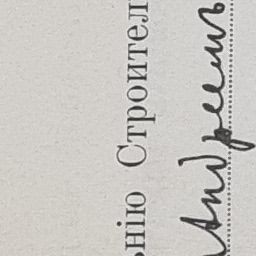 ьнію Строител
Андреевъ